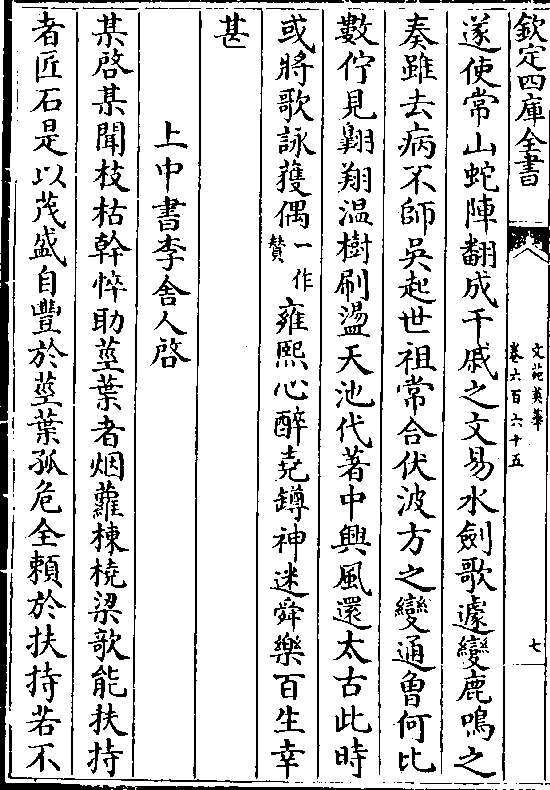 欽定四庫全書
文苑英華
卷六百六十五
七
遂使常山蛇陣翻成干戚之文易水劍歌遽變鹿鳴之
奏雖去病不師吳起世祖常合伏波方之變通曾何比
數佇見翺翔温樹刷盪天池代著中興風還太古此時
或將歌詠獲偶一作賛雍熙心醉堯罇神迷舜樂百生幸
甚
上中書李舍人啓
某啓某聞枝枯幹悴助莖葉者烟蘿棟橈梁欹能扶持
者匠石是以茂盛自豐於莖葉孤危全頼於扶持若不